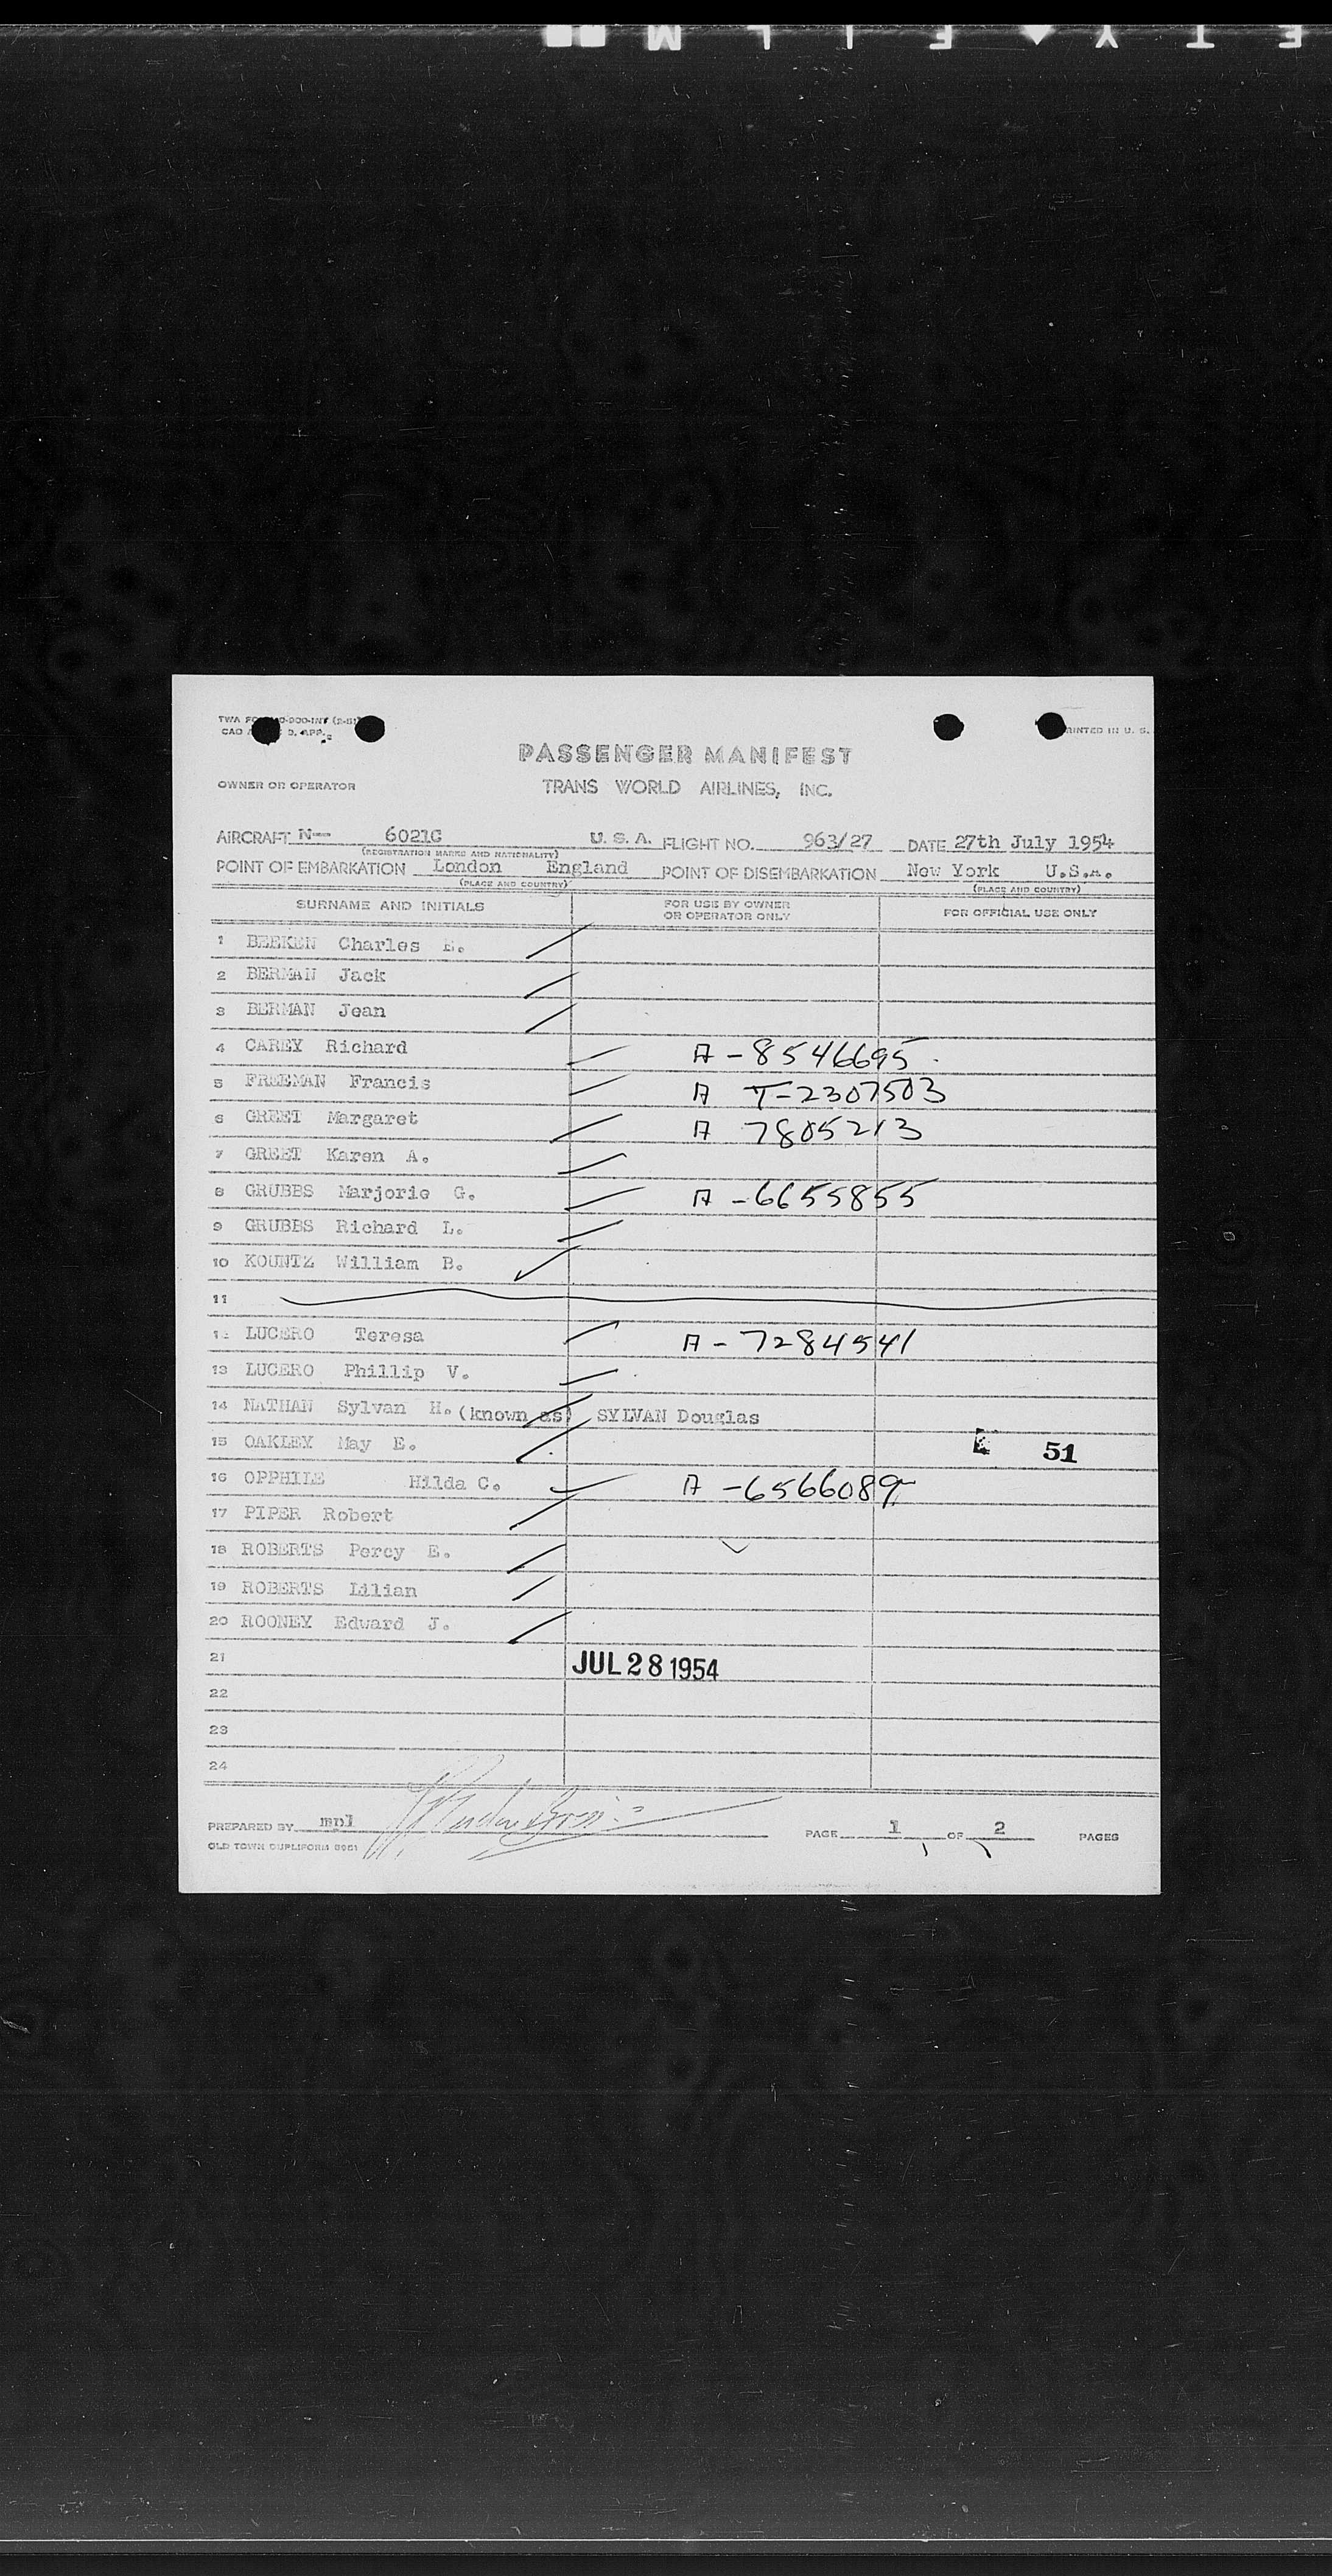 PASSENGER MANIFEST
OWNER OR OPERATOR TRANS WORLD AIRLINES, INC.
AIRCRAFT N— 6021C U. S. A. FLIGHT NO. 963/27 DATE 27th July 1954
(REGISTRATION MARKS AND NATIONALITY)
POINT OF EMBARKATION London England POINT OF DISEMBARKATION New York U.S.A.
(PLACE AND COUNTRY) (PLACE AND COUNTRY)
SURNAME AND INITIALS FOR USE BY OWNER OR OPERATOR ONLY FOR OFFICIAL USE ONLY
1 BEEKEN Charles E.
2 BERMAN Jack
3 BERMAN Jean
4 CAREY Richard A-8546695
5 FREEMAN Francis A T-2307503
6 GREET Margaret A 7805213
7 GREET Karen A.
8 GRUBBS Marjorie G. A-6655855
9 GRUBBS Richard L.
10 KOUNTZ William B.
11
12 LUCERO Teresa A-7284541
13 LUCERO Phillip V.
14 NATHAN Sylvan H. (known as) SYLVAN Douglas
15 OAKLEY May E. 51
16 OPPHILE Hilda C. A-6566089
17 PIPER Robert
18 ROBERTS Percy E.
19 ROBERTS Lilian
20 ROONEY Edward J.
21 JUL 28 1954
22
23
24
PREPARED BY mpl PAGE 1 OF 2 PAGES
OLD TOWN DUPLIFORM